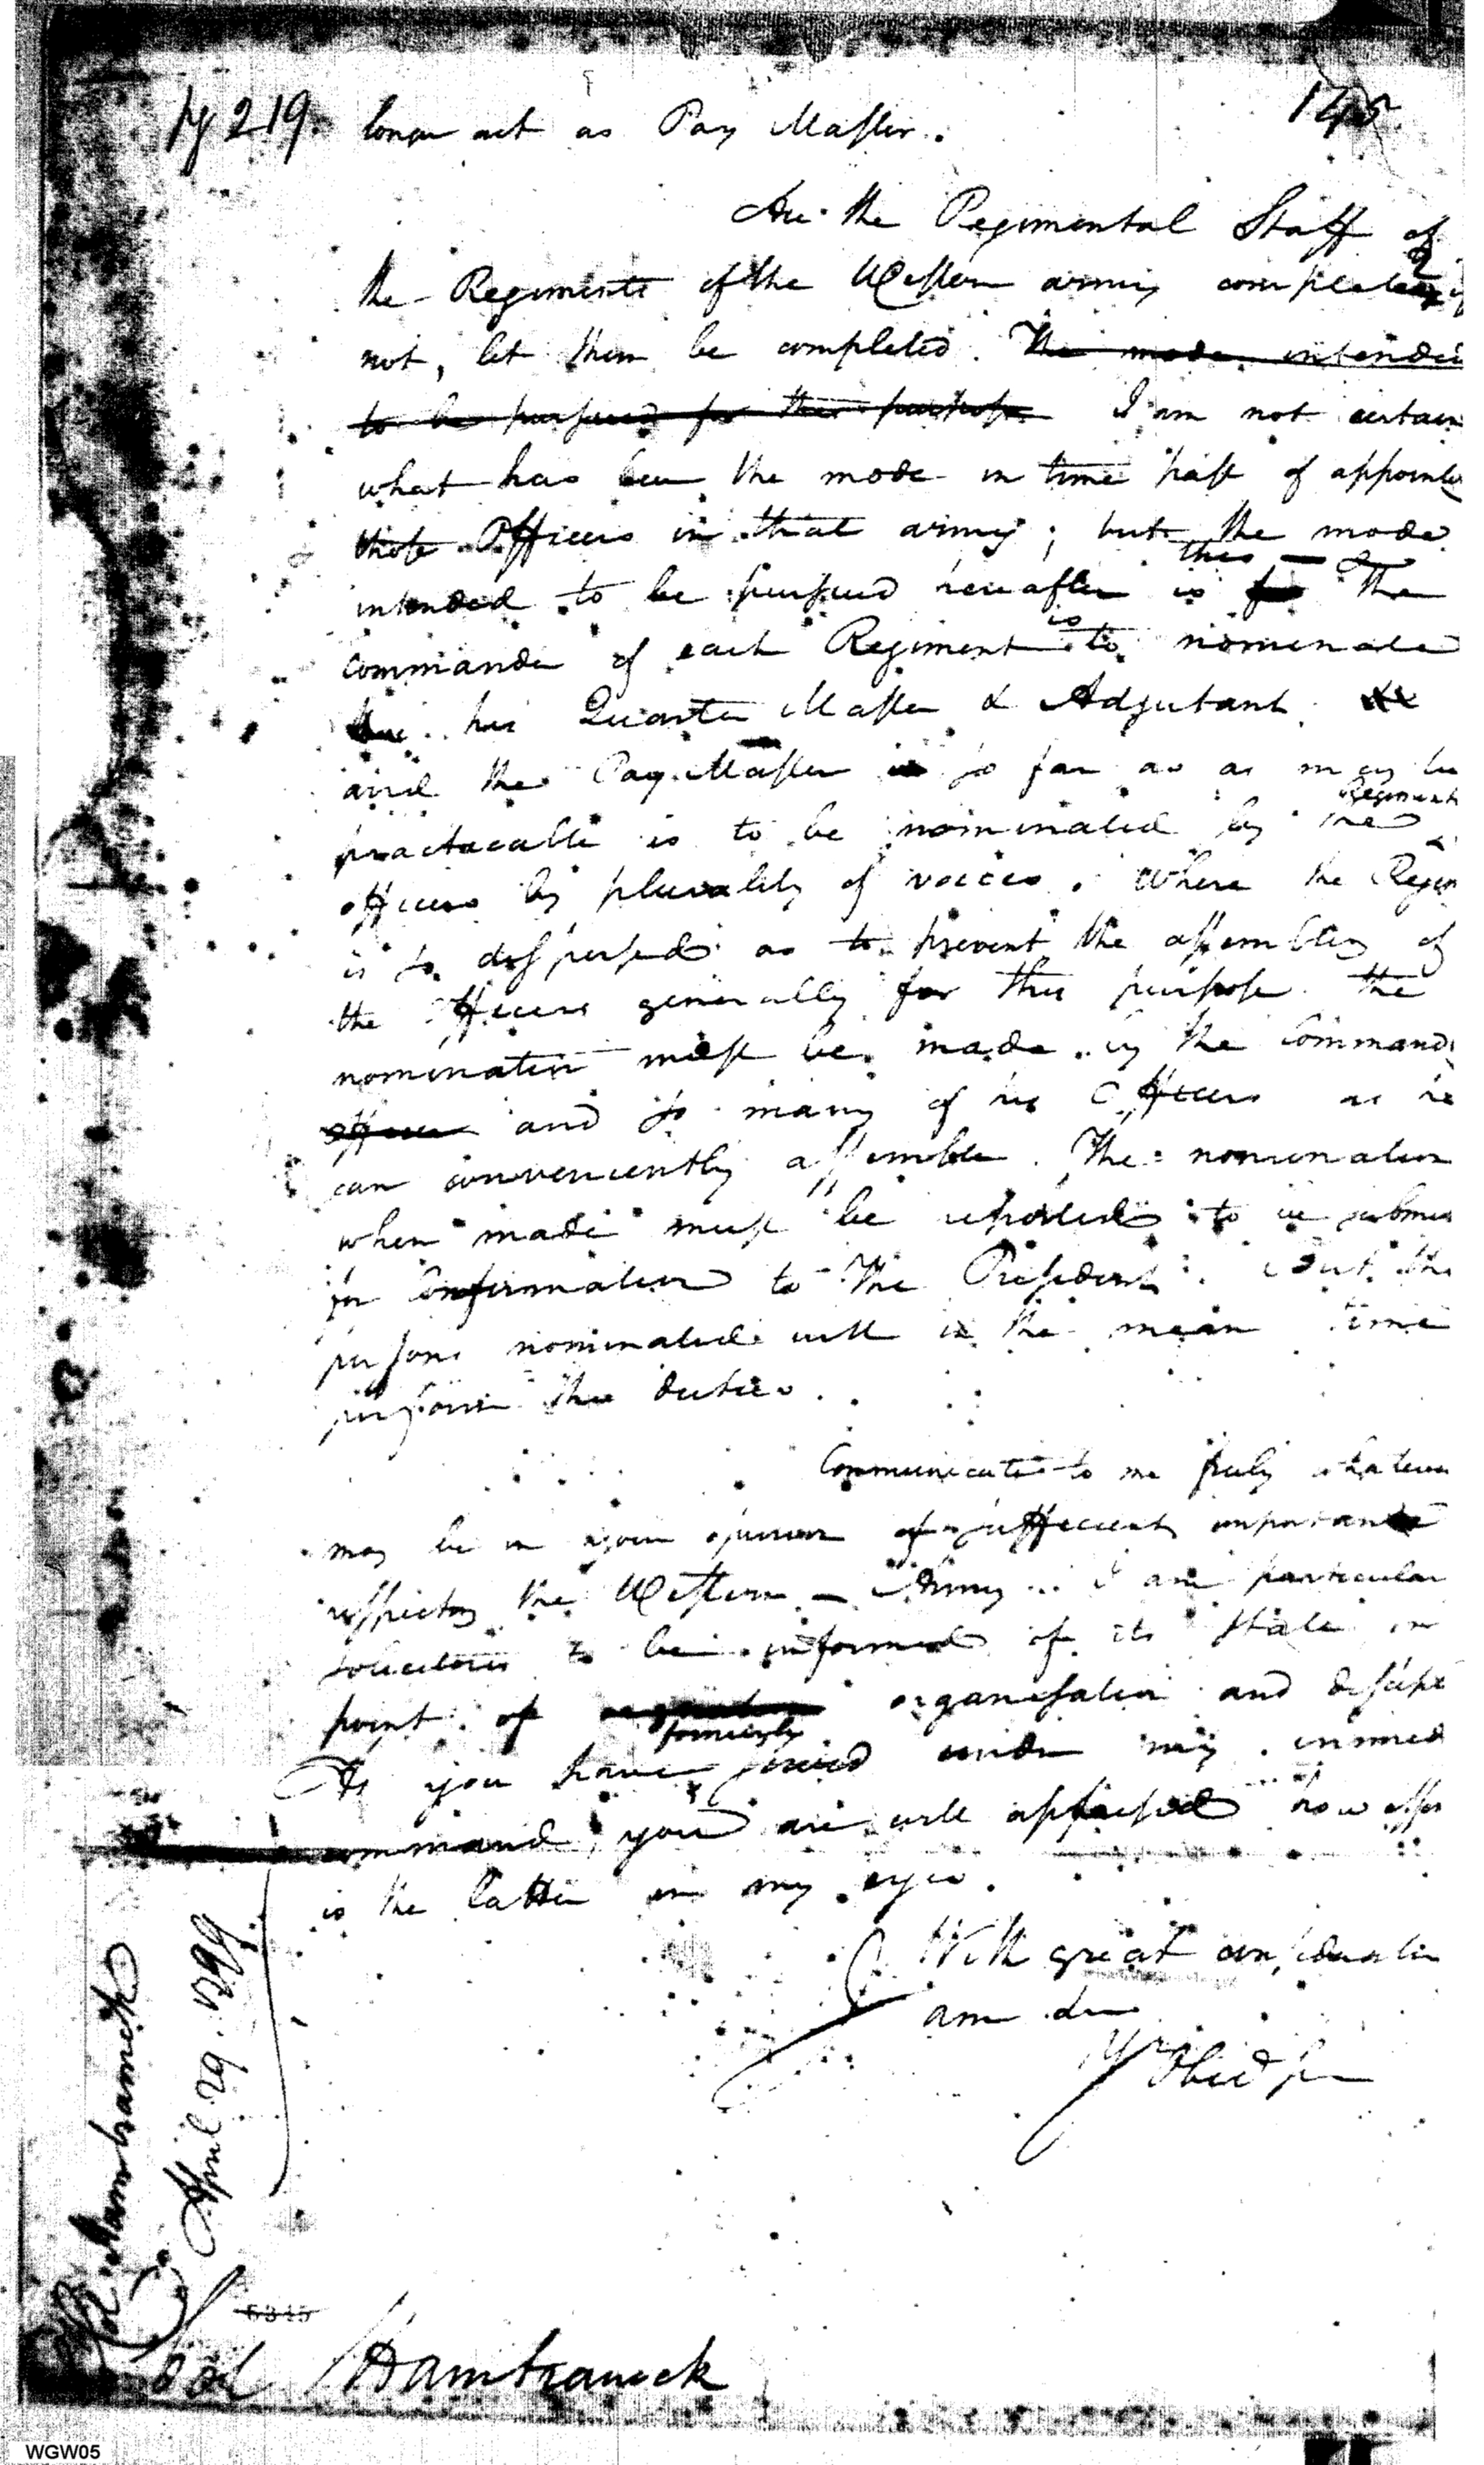 pg 219. longer act as Pay Master.
145.
Are the Regimental Staff of
the Regiments of the Western army complete? if
not, let them be completed. The mode intended
to be pursued for this purpose I am not certain
what has been the mode in time past of appointing
those Officers in that army; but the mode
intended to be pursued hereafter is this — The
commander of each Regiment is to nominate
his Quarter Master & Adjutant
and the Pay Master so far as as may be
practacable is to be nominated by the Regimental
officers by plurality of voices. Where the Regim
is so dispersed as to prevent the assembling of
the officers generally for this purpose the
nomination must be made by the Command
officer and so many of his Officers as he
can conveniently assemble. The nomination
when made must be reported to be submit
for Confirmation to The President. But the
persons nominated will in the mean time
perform the duties.
Communicate to me freely whatever
may be in your opinion of sufficient importance
respecting the Western Army. I am particular
solicitous to be informed of its state in
point of organisation and discipl
As you have formerly served under my immed
command, you are well apprised how essen
is the latter in my eyes.
With great consideratin
am dr
Yr Obed ser
Hamtramck
April 29. 1799
5345
Col Hamtramck
WGW05